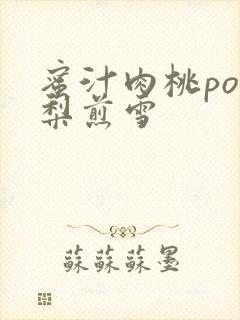 蜜汁肉桃po
梨煎雪
蘇蘇蘇墨